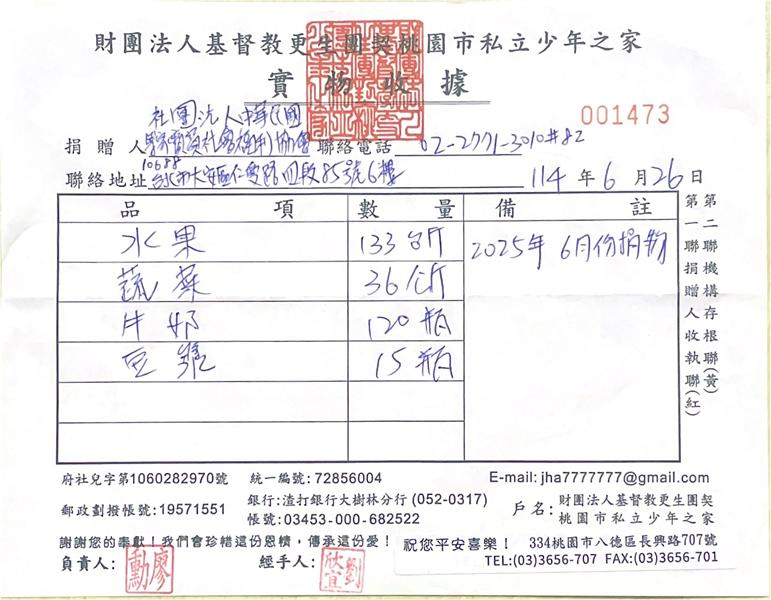 財團法人基督教更生團契桃園市私立少年之家
實物收據
001473
社團法人中華民國
捐贈人 社會福利協會 聯絡電話 02-2771-3010#82
10688
聯絡地址 台北市大安區仁愛路四段85號6樓 114年6月26日
品項 數量 備註
水果 133台斤 2025年6月份捐物
蔬菜 36公斤
牛奶 120瓶
豆漿 15瓶
第二聯機構存根聯(黃)
第一聯捐贈人收執聯(紅)
府社兒字第1060282970號 統一編號:72856004 E-mail: jha7777777@gmail.com
郵政劃撥帳號:19571551 銀行:渣打銀行大樹林分行 (052-0317) 戶名: 財團法人基督教更生團契
帳號:03453-000-682522 桃園市私立少年之家
謝謝您的奉獻!我們會珍惜這份恩情,傳承這份愛! 祝您平安喜樂! 334桃園市八德區長興路707號
負責人: 廖勳 經手人: 劉欣宜 TEL:(03)3656-707 FAX:(03)3656-701